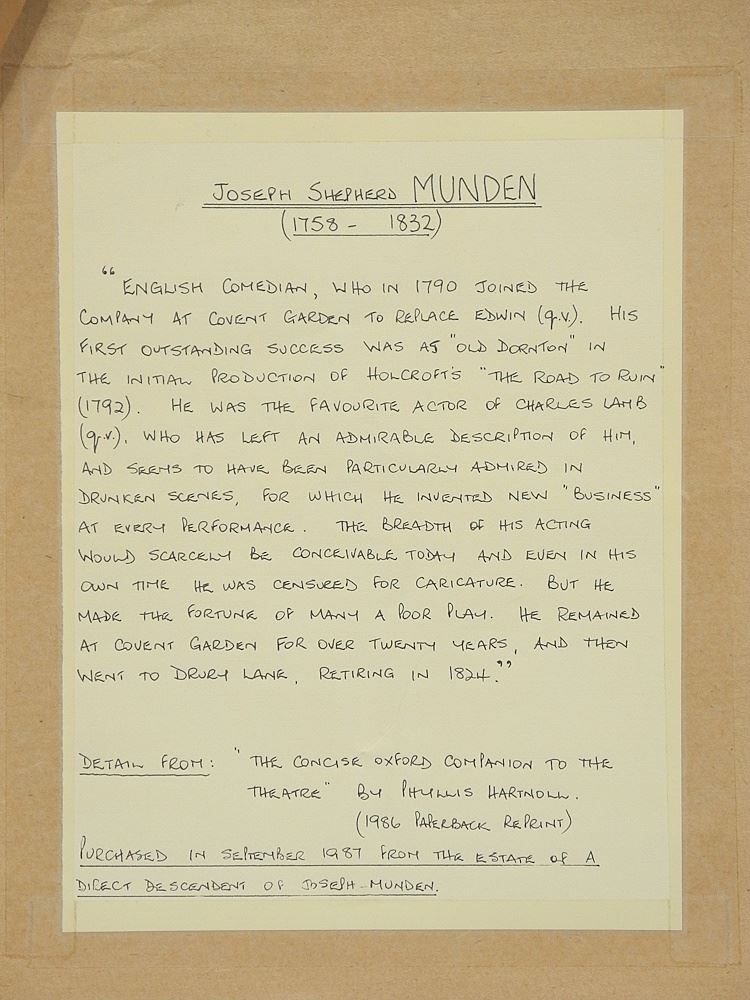 JOSEPH SHEPHERD MUNDEN
(1758 - 1832)
"ENGLISH COMEDIAN, WHO IN 1790 JOINED THE
COMPANY AT COVENT GARDEN TO REPLACE EDWIN (q.v.). HIS
FIRST OUTSTANDING SUCCESS WAS AS "OLD DORNTON" IN
THE INITIAL PRODUCTION OF HOLCROFT'S "THE ROAD TO RUIN"
(1792). HE WAS THE FAVOURITE ACTOR OF CHARLES LAMB
(q.v.), WHO HAS LEFT AN ADMIRABLE DESCRIPTION OF HIM,
AND SEEMS TO HAVE BEEN PARTICULARLY ADMIRED IN
DRUNKEN SCENES, FOR WHICH HE INVENTED NEW "BUSINESS"
AT EVERY PERFORMANCE. THE BREADTH OF HIS ACTING
WOULD SCARCELY BE CONCEIVABLE TODAY AND EVEN IN HIS
OWN TIME HE WAS CENSURED FOR CARICATURE. BUT HE
MADE THE FORTUNE OF MANY A POOR PLAY. HE REMAINED
AT COVENT GARDEN FOR OVER TWENTY YEARS, AND THEN
WENT TO DRURY LANE, RETIRING IN 1824."
DETAIL FROM: "THE CONCISE OXFORD COMPANION TO THE
THEATRE" BY PHYLLIS HARTNOLL.
(1986 PAPERBACK REPRINT)
PURCHASED IN SEPTEMBER 1987 FROM THE ESTATE OF A
DIRECT DESCENDENT OF JOSEPH MUNDEN.